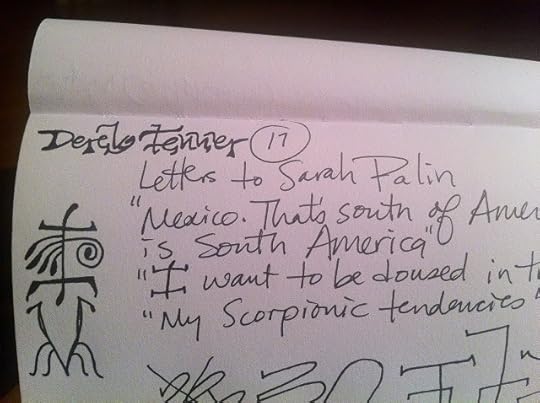 Derek Fenner 17
Letters to Sarah Palin
"Mexico. That's south of Amer
is South America"
"I want to be doused in t
"My Scorpionic tendencies"